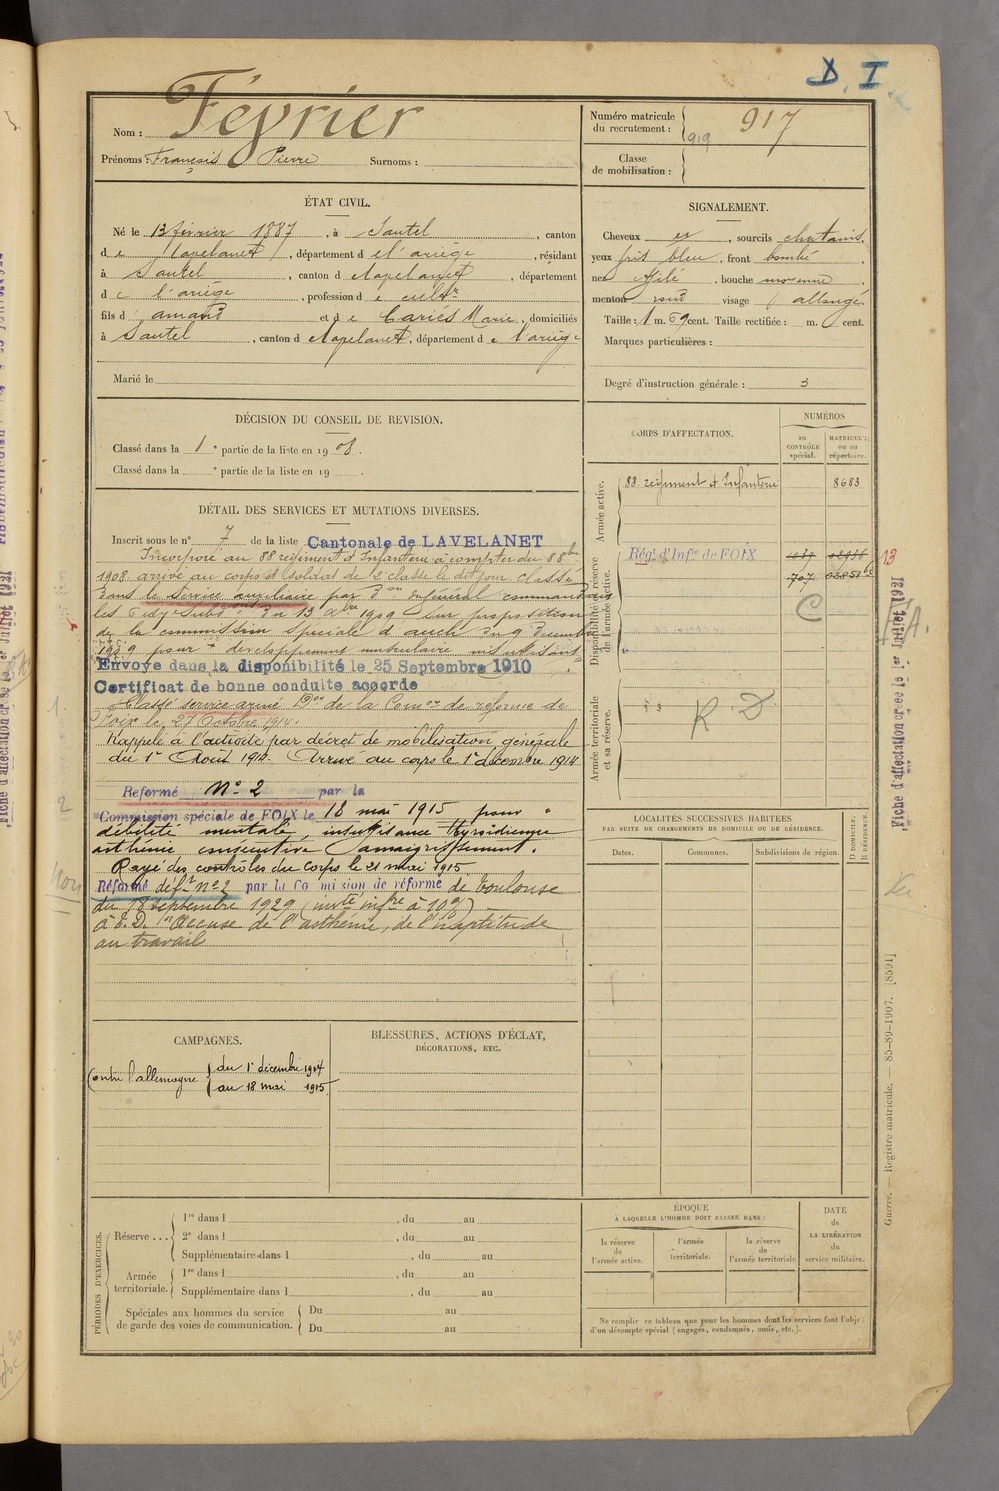 D. I.
Nom : Février
Prénoms : François Pierre Surnoms :
Numéro matricule
du recrutement : 917
919
Classe
de mobilisation :
ÉTAT CIVIL.
Né le 13 février 1887, à Sautel, canton
de Lapelanet, département de l'ariège, résidant
à Sautel, canton de Lapelanet, département
de l'ariège, profession de cultr
fils d'amand et de Cariés Marie, domiciliés
à Sautel, canton de Lapelanet, département de l'ariège
Marié le
SIGNALEMENT.
Cheveux et, sourcils chatains,
yeux gris bleu, front bombé
nez effilé, bouche moyenne,
menton rond visage allongé
Taille : 1 m. 69 cent. Taille rectifiée : m. cent.
Marques particulières :
Degré d'instruction générale : 3
DÉCISION DU CONSEIL DE REVISION.
Classé dans la 1e partie de la liste en 1908.
Classé dans la e partie de la liste en 19
CORPS D'AFFECTATION.
NUMÉROS
au CONTRÔLE spécial.
MATRICULE ou au répertoire.
Armée active.
88. régiment d'Infanterie 8683
Disponibilité et réserve de l'armée active.
Régt d'Infie de FOIX
707
13
C
Armée territoriale et sa réserve.
R. D
DÉTAIL DES SERVICES ET MUTATIONS DIVERSES.
Inscrit sous le n° 7 de la liste Cantonale de LAVELANET
Incorporé au 88 régiment d'Infanterie à compter du 8 8bre
1908 arrivé au corps et soldat de 2e classe le dit jour classé
dans le service auxiliaire par Don du Général commandant
les Subons du 13 Xbre 1909 sur proposition
de la commission Spéciale d'auch du 9 Décembre
1909 pour "développement musculaire insuffisant"
Envoyé dans la disponibilité le 25 Septembre 1910
Certificat de bonne conduite accordé
Classé service armé Don de la Comon de réforme de
Foix le 27 Octobre 1914.
Rappelé à l'activité par décret de mobilisation générale
du 1er Août 1914. Arrivé au corps le 1er décembre 1914
Réformé N° 2 par la
Commission spéciale de FOIX le 18 mai 1915 pour "
débilité mentale, insuffisance thyroïdienne
asthénie consécutive amaigrissement.
Rayé des contrôles du corps le 21 mai 1915.
Réformé déft n° 2 par la Commission de réforme de Toulouse
du 18 septembre 1929 (invté infre à 10%)
à E.D. 1er Accuse de l'asthénie, de l'inaptitude
au travail
LOCALITÉS SUCCESSIVES HABITÉES
PAR SUITE DE CHANGEMENTS DE DOMICILE OU DE RÉSIDENCE.
Dates.
Communes.
Subdivisions de région.
D DOMICILE.
R RÉSIDENCE.
CAMPAGNES.
Contre l'allemagne du 1er décembre 1914
au 18 mai 1915.
BLESSURES, ACTIONS D'ÉCLAT,
DÉCORATIONS, ETC.
PÉRIODES D'EXERCICES.
Réserve ... 1re dans l , du au
2e dans l , du au
Supplémentaire dans l , du au
Armée territoriale. 1re dans l , du au
Supplémentaire dans l , du au
Spéciales aux hommes du service
de garde des voies de communication. Du au
Du au
ÉPOQUE
À LAQUELLE L'HOMME DOIT PASSER DANS :
la réserve de l'armée active.
l'armée territoriale.
la réserve de l'armée territoriale
DATE
de
LA LIBÉRATION
du
service militaire.
Ne remplir ce tableau que pour les hommes dont les services font l'objet
d'un décompte spécial (engagés, condamnés, omis, etc.).
Fiche d'affectation créée le 1er Juillet 1921
Guerre. — Registre matricule. — 85-89-1907. [8591]